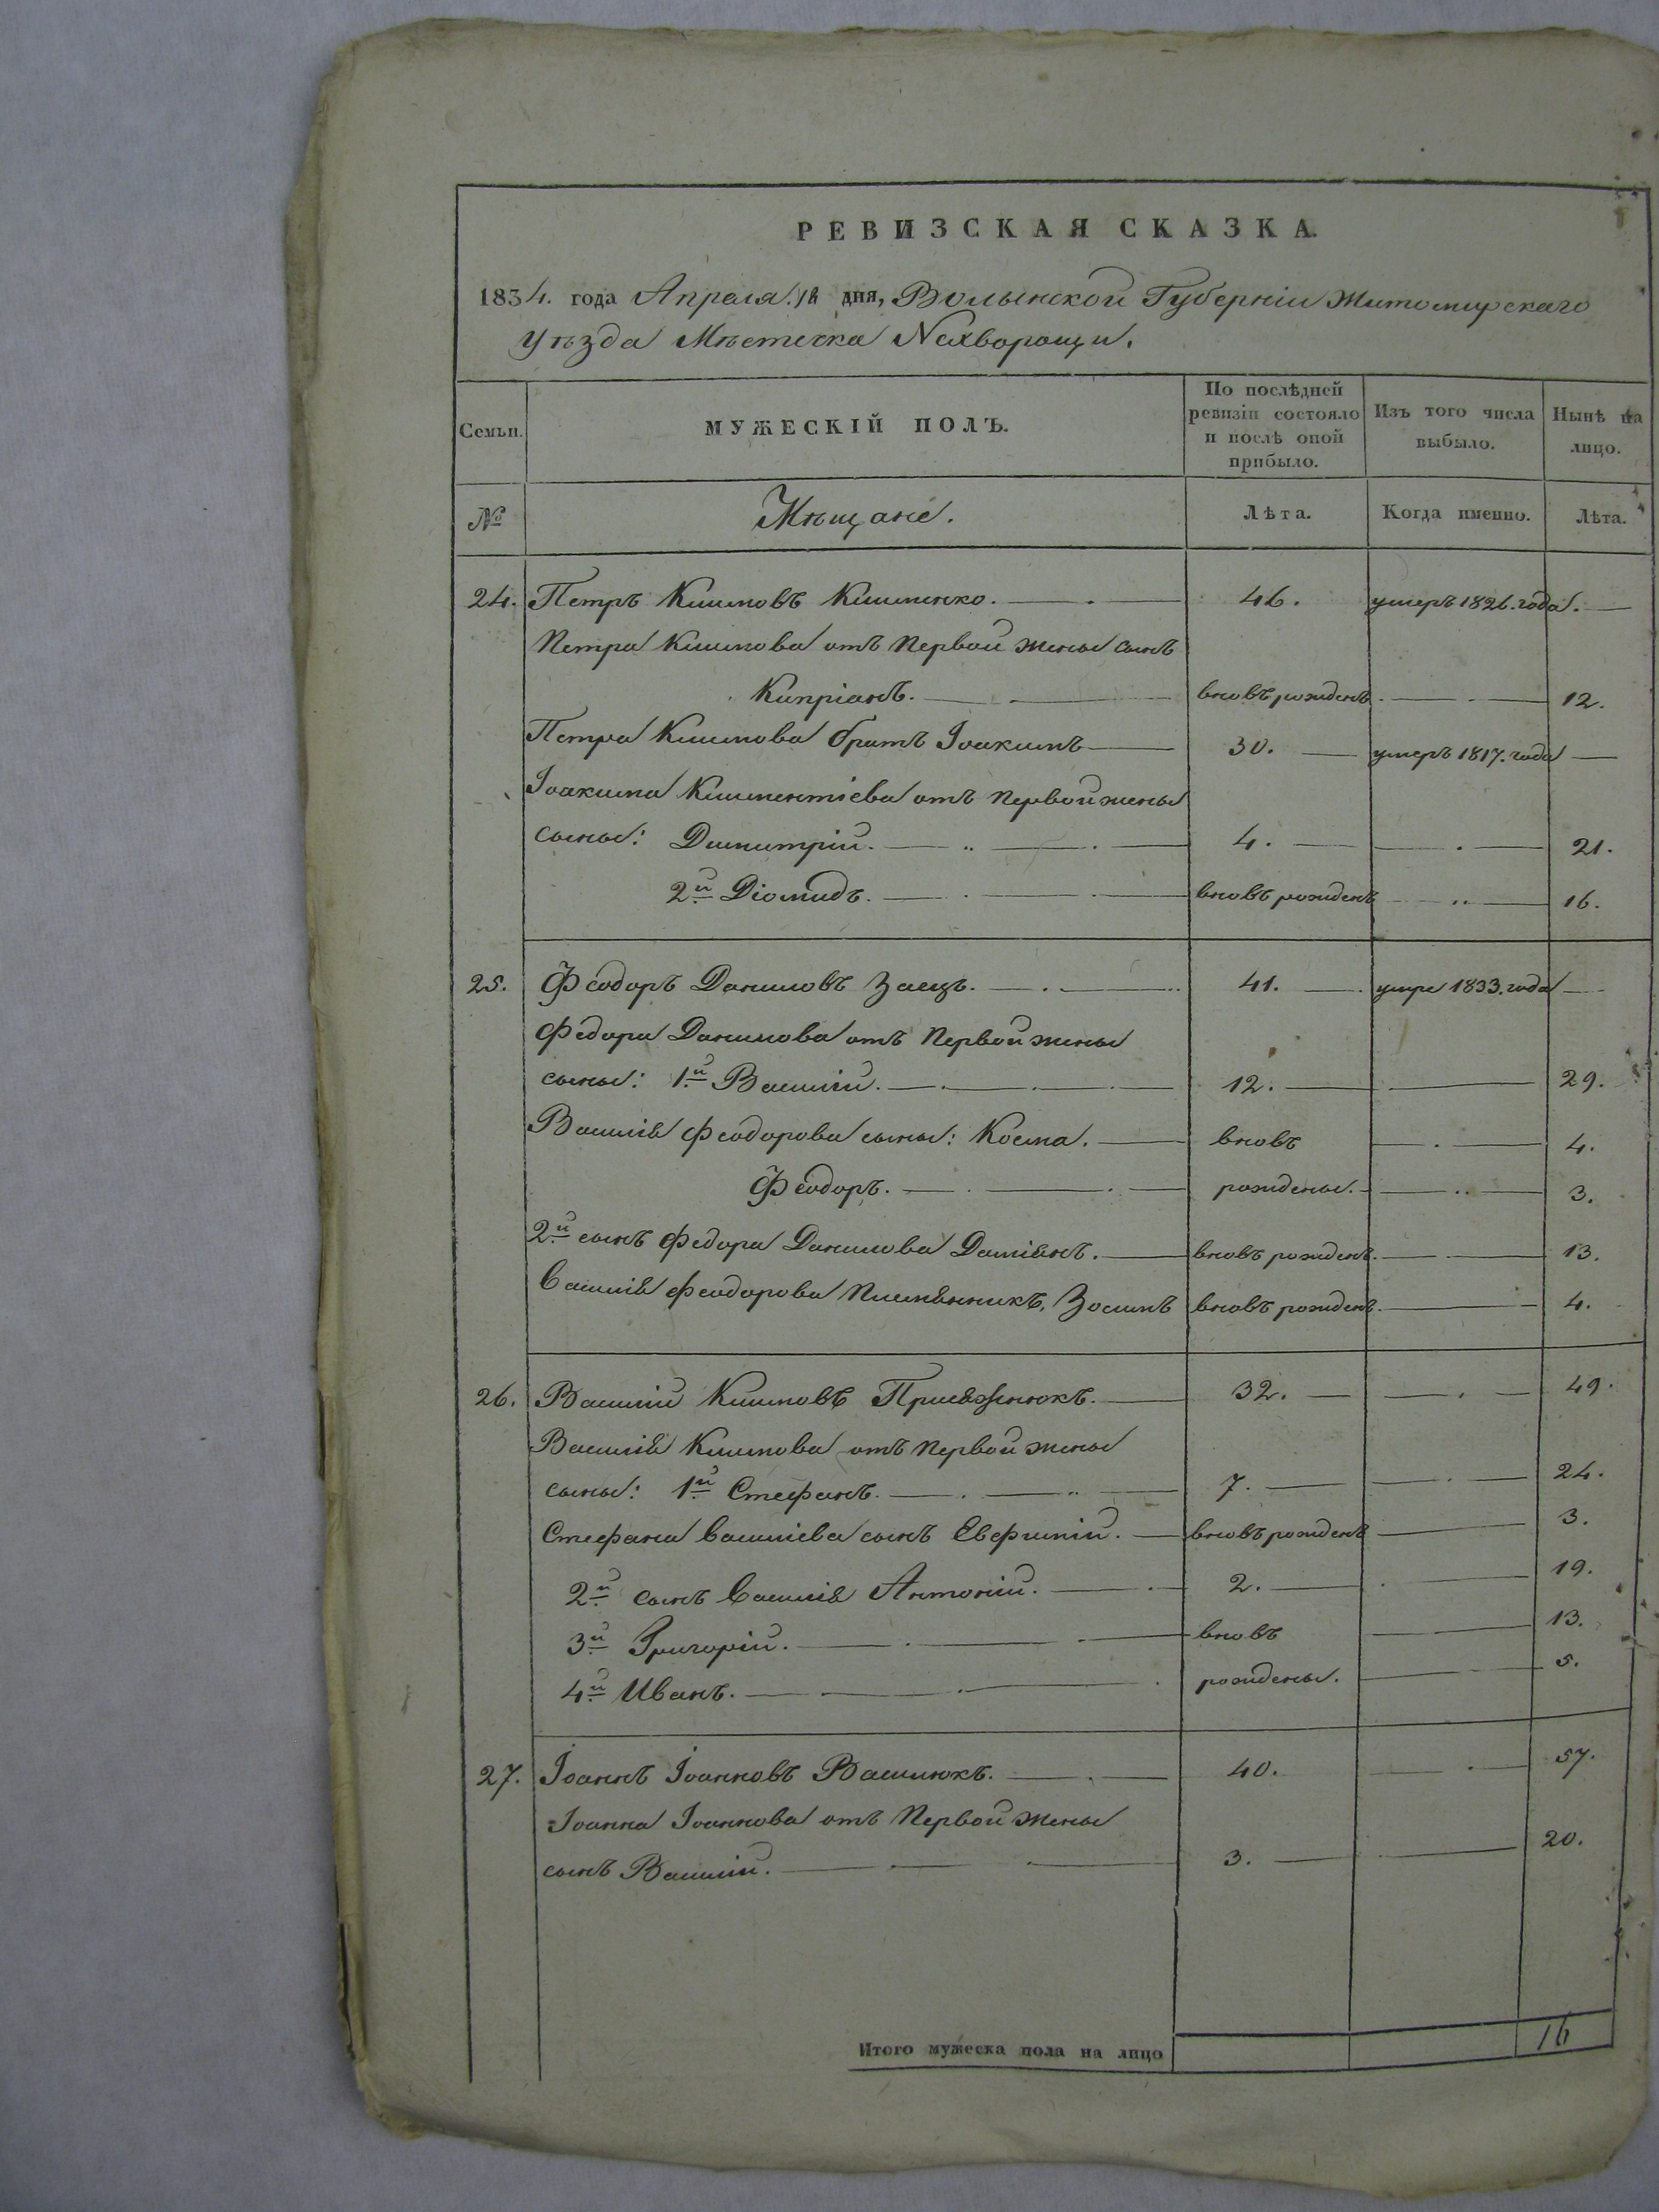 РЕВИЗСКАЯ СКАЗКА.
1834. года Апреля 18 дня, Волынской Губерніи Житомирскаго
Уѣзда Мѣстечка Нехворощи.
Семьи.
МУЖЕСКІЙ ПОЛЪ.
По послѣдней ревизіи состояло и послѣ оной прибыло.
Изъ того числа выбыло.
Нынѣ на лицо.
№
Мѣщане.
Лѣта.
Когда именно.
Лѣта.
24. Петръ Климовъ Клименко. 46. умеръ 1826. года.
Петра Климова отъ Первой жены сынъ
Кипріянъ. вновъ рожденъ 12.
Петра Климова братъ Іоакимъ 30. умеръ 1817. года
Іоакима Климентіева отъ Первой жены
сыны: Димитрій. 4. 21.
2й Діомидъ. вновъ рожденъ 16.
25. Феодоръ Даниловъ Заецъ. 41. умре 1833. года
Федора Данилова отъ Первой жены
сыны: 1й Василій. 12. 29.
Василія Феодорова сыны: Косма. вновъ 4.
Феодоръ. рождены. 3.
2й сынъ Федора Данилова Даміянъ. вновъ рожденъ. 13.
Василія Феодорова Племянникъ, Зосимъ вновъ рожденъ. 4.
26. Василій Климовъ Приежнюкъ. 32. 49.
Василія Климова отъ Первой жены
сыны: 1й Стефанъ. 7. 24.
Стефана Василіева сынъ Евфимій. вновъ рожденъ 3.
2й сынъ Василія Антоній. 2. 19.
3й Григорій. вновъ 13.
4й Иванъ. рождены. 5.
27. Іоаннъ Іоанновъ Василюкъ. 40. 57.
Іоанна Іоаннова отъ Первой жены
сынъ Василій. 3. 20.
Итого мужеска пола на лицо 16